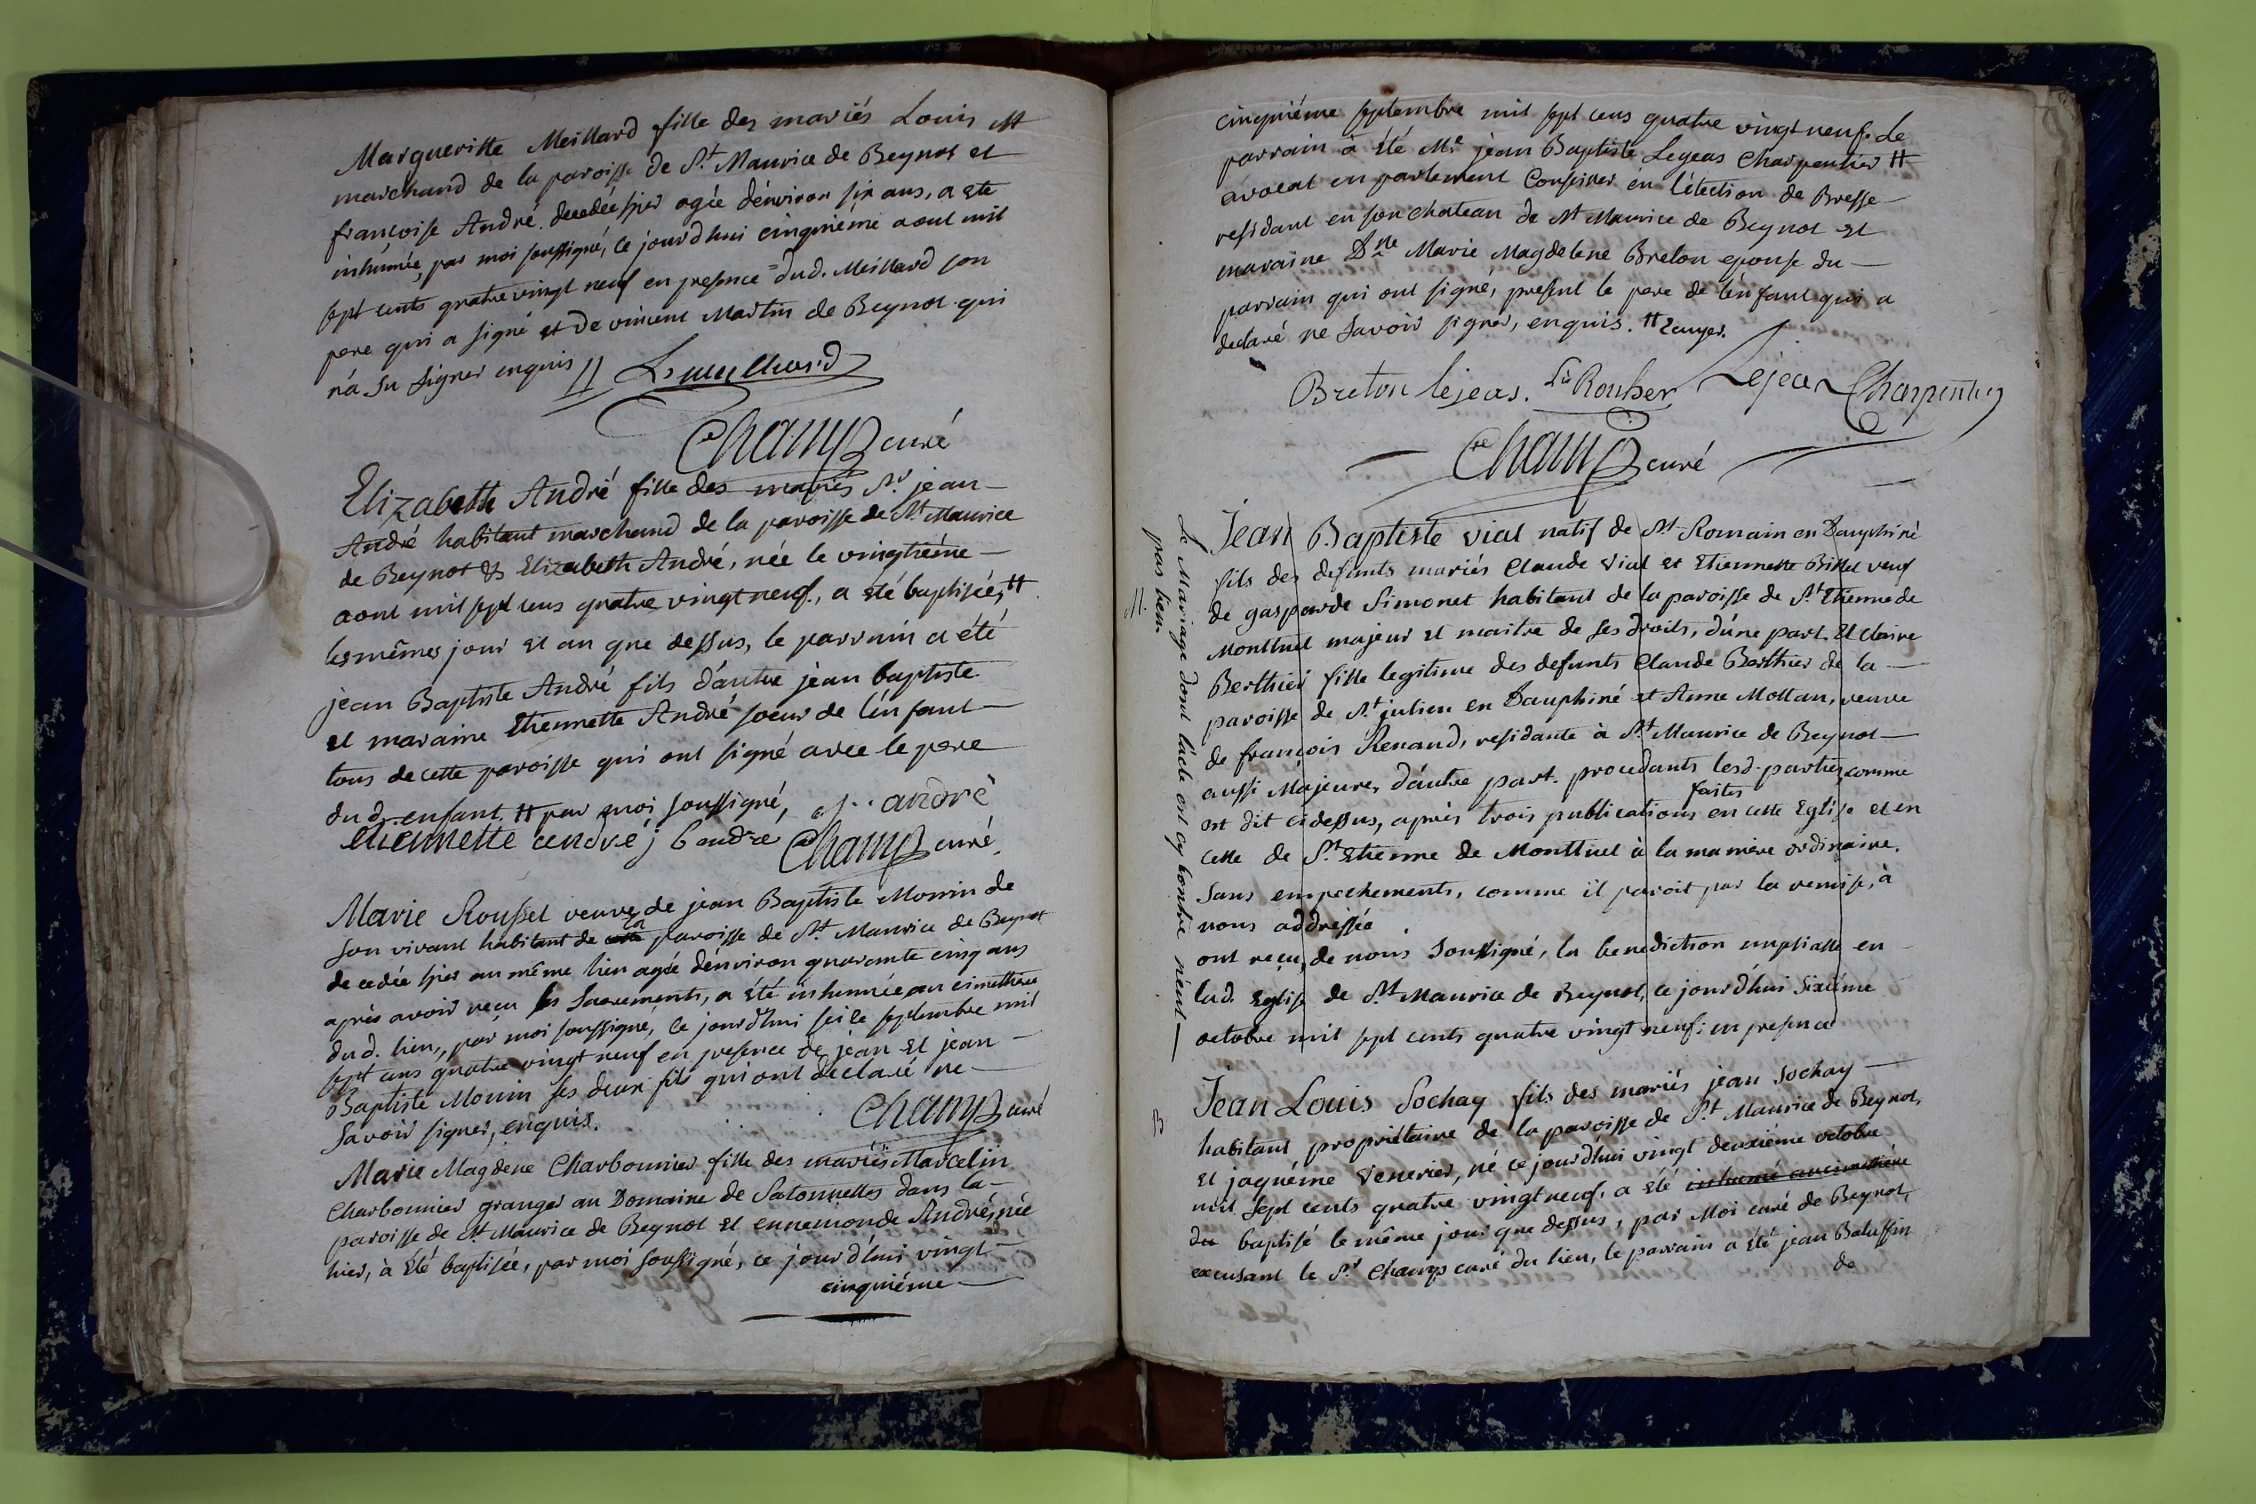 Margueritte Meillard fille des mariés Louis M
marchand de la paroisse de St Maurice de Beynot et
françoise André, decedée hier agée d'énviron six ans, a ete
inhumée, par moi soussigné, ce jourd'hui cinquiémé aout mil
sept cents quatre vingt neuf en presence dud. Meillard son
pere qui a signé et de vincent Martin de Beynot qui
n'a su signer enquis
Champ curé
Elizabeth André fille des mariés Sr jean
André habitant marchand de la paroisse de St Maurice
de Beynot & Elizabeth André, née le vingtiéme
aout mil sept cens quatre vingt neuf, a eté baptisée, #
les mêmes jour et an que dessus, le parrain a été
jean Baptiste André fils d'autre jean baptiste
et maraine Etiennette André soeur de l'énfant
tous de cette paroisse qui ont signé avec le pere
dud. enfant. # par moi soussigné, andré
etiennette andre j b andre Champ curé
Marie Rousset veuve de jean Baptiste Monin de
son vivant habitant de cette la paroisse de St Maurice de Beynot
decedée hier au même lieu agée d'énviron quarante cinq ans
après avoir reçu les Sacrements, a eté inhumée au cimettière
dud. lieu, par moi soussigné, ce jourd'hui seize septembre mil
sept cens quatre vingt neuf en presence de jean et jean
Baptiste Monin ses deux fils qui ont declaré ne
savoir signer, enquis. Champ curé
Marie Magdene Charbonnier fille des mariés Marcelin
Charbonnier granger au Domaine de Satonnettes dans la
paroisse de St Maurice de Beynot et ennemonde André, née
hier, à eté baptisée, par moi soussigné, ce jourd'hui vingt
cinquiéme
cinquiéme septembre mil sept cens quatre vingt neuf. le
parrain a eté Mr jean Baptiste Lejeas Charpentier #
avocat en parlement Conseiller en l'élection de Bresse
residant en son chateau de St Maurice de Beynot et
maraine Dne Marie Magdelene Breton epouse du
parrain qui ont signé, present le pere de l'énfant qui a
declaré ne savoir signer, enquis. # Ecuyer.
Breton lejeas. Lejeas Charpentier
Champ curé
Le Mariage dont l'acte est cy contre n'eut
pas lieu
M.
Jean Baptiste vial natif de St Romain en Dauphiné
fils des defunts mariés Claude Vial et Etiennette veuf
de gasparde Simonet habitant de la paroisse de St Etienne de
Montluel majeur et maitre de ses droits, d'une part. Et claire
Berthier fille legitime des defunts Claude Berthier de la
paroisse de St julien en Dauphiné et Anne Mollan, veuve
de françois Renaud, residante à St Maurice de Beynot
aussi Majeure, d'autre part. procedants lesd. parties, comme
est dit cidessus, après trois publications faites en cette Eglise et en
celle de St Etienne de Montluel à la maniere ordinaire.
sans empechements, comme il paroit par la remise, à
nous addressée
ont reçu, de nous soussigné, la benediction nuptialle en
lad. Eglise de St Maurice de Beynot, ce jourd'hui Sixiéme
octobre mil sept cents quatre vingt neuf, en presence
B
Jean Louis Sochay fils des mariés jean Sochay
habitant propriétaire de la paroisse de St Maurice de Beynot,
et jaquéme Venerier, né ce jourd'hui vingt deuxiéme octobre
mil Sept cents quatre vingt neuf, a eté inhumé au cimettière
du baptisé le même jour que dessus, par Moi curé de Beynot,
excusant le Sr Champ curé du lieu, le parrain a eté jean Balussin
de